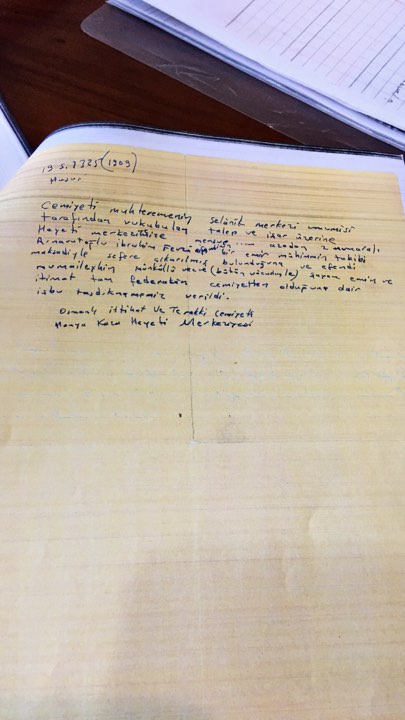 19.5.1325 (1909)
Husus:
Cemiyeti muhteremenin selanik merkezi umumisi
tarafından vukubulan talep ve izar üzerine
Heyeti merkezimize mensup .... azadan 2 numaralı
Arnavutoğlu ibrahim Fevzi efendi bir emir mühimmin takibi
maksadiyle sefere çıkarılmış bulunduğuna ve efendi
mumaileyhin minküllü vecih (bütün vücuduyla) şayanı emin ve
itimat tam federabin cemiyetten olduğuna dair
işbu tasdiknamemiz verildi.
Osmanlı ittihat Ve Terakki Cemiyeti
Heyeti Merkeziyesi